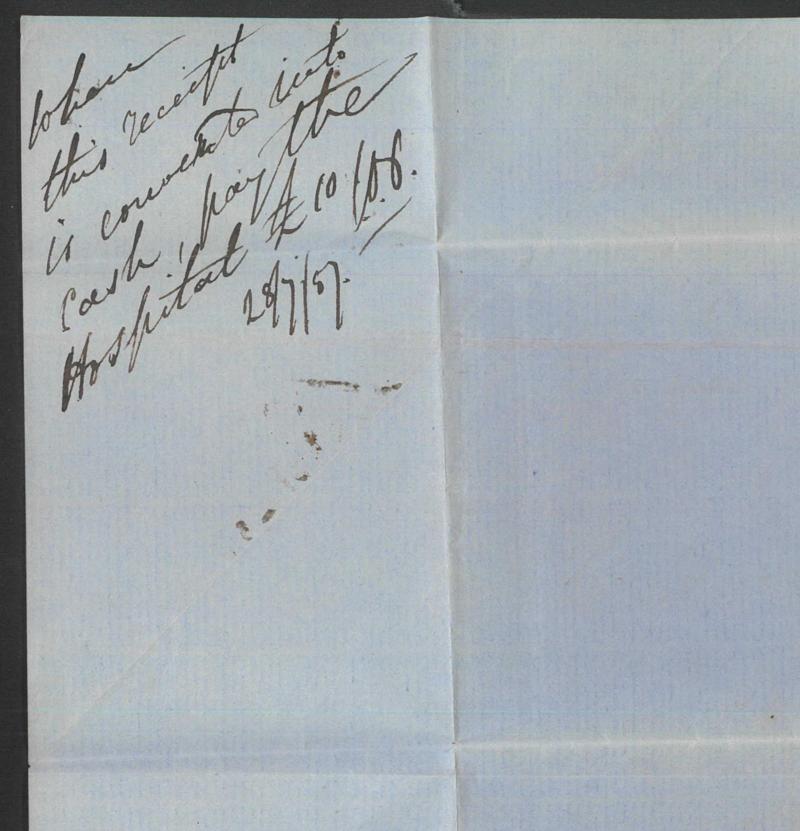 When
this receipt
is converted into
cash, pay the
Hospital £10/10.6.
28/7/57.